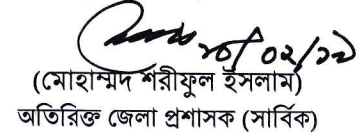 (মোহাম্মদ শরীফুল ইসলাম)
অতিরিক্ত জেলা প্রশাসক (সার্বিক)